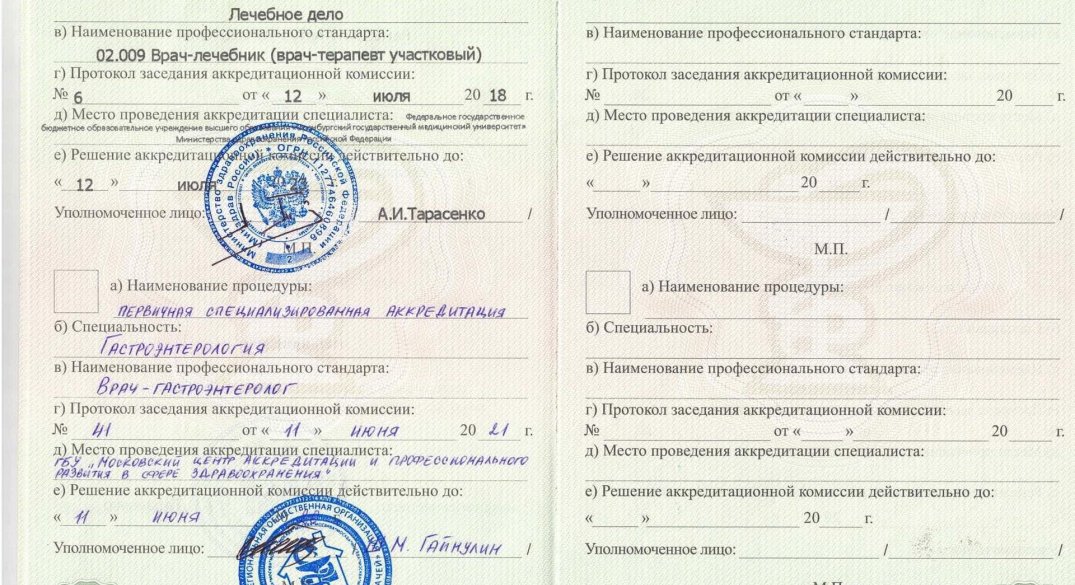 Лечебное дело
в) Наименование профессионального стандарта:
02.009 Врач-лечебник (врач-терапевт участковый)
г) Протокол заседания аккредитационной комиссии:
№ 6 от « 12 » июля 20 18 г.
д) Место проведения аккредитации специалиста: Федеральное государственное
бюджетное образовательное учреждение высшего государственный медицинский университет»
Министерства Федерации
е) Решение аккредитационной комиссии действительно до:
« 12 » июля 2023
Уполномоченное лицо: А.И.Тарасенко /
М.П.
Министерство здравоохранения Российской Федерации
(Минздрав России) * ОГРН 127746460896
2
а) Наименование процедуры:
ПЕРВИЧНАЯ СПЕЦИАЛИЗИРОВАННАЯ АККРЕДИТАЦИЯ
б) Специальность:
ГАСТРОЭНТЕРОЛОГИЯ
в) Наименование профессионального стандарта:
ВРАЧ-ГАСТРОЭНТЕРОЛОГ
г) Протокол заседания аккредитационной комиссии:
№ 41 от « 11 » ИЮНЯ 20 21 г.
д) Место проведения аккредитации специалиста:
ГБУ „МОСКОВСКИЙ ЦЕНТР АККРЕДИТАЦИИ И ПРОФЕССИОНАЛЬНОГО
РАЗВИТИЯ В СФЕРЕ ЗДРАВООХРАНЕНИЯ"
е) Решение аккредитационной комиссии действительно до:
« 11 » ИЮНЯ
Уполномоченное лицо: М. ГАЙНУЛИН /
ОБЩЕСТВЕННАЯ ОРГАНИЗАЦИЯ
в) Наименование профессионального стандарта:
г) Протокол заседания аккредитационной комиссии:
№ от « » 20 г.
д) Место проведения аккредитации специалиста:
е) Решение аккредитационной комиссии действительно до:
« » 20 г.
Уполномоченное лицо: / /
М.П.
а) Наименование процедуры:
б) Специальность:
в) Наименование профессионального стандарта:
г) Протокол заседания аккредитационной комиссии:
№ от « » 20 г.
д) Место проведения аккредитации специалиста:
е) Решение аккредитационной комиссии действительно до:
« » 20 г.
Уполномоченное лицо: / /
М.П.